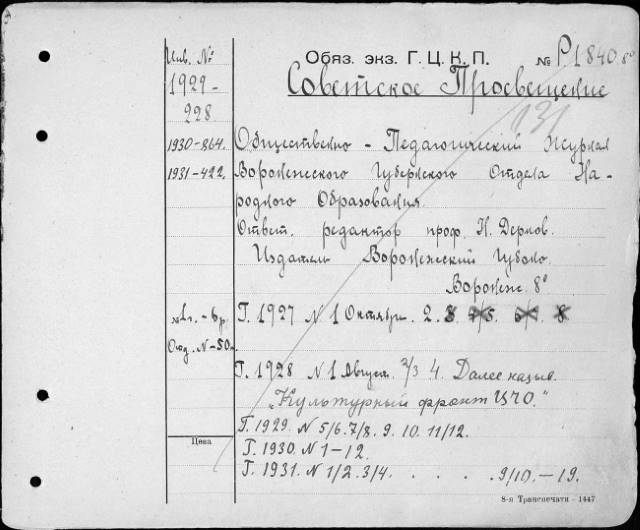 Инв. №
1929-
228
1930-864.
1931-422.
1 г. - 6 р.
Отд. № -50 к.
Цена
Обяз. экз. Г.Ц.К.П. № Р1840. 8°
Советское Просвещение
131
Общественно - Педагогический Журнал
Воронежского Губернского Отдела На-
родного Образования.
Ответ. редактор проф. Н. Дернов.
Издатель Воронежский Губоно.
Воронеж. 8°
Г. 1927 N 1 Октябрь. 2. 8
Г. 1928 N 1 Август. 2/3 4. Далее назыв.
„Культурный фронт ЦЧО."
Г. 1929. N 5/6. 7/8. 9. 10. 11/12.
Г. 1930. N 1-12.
Г. 1931. N 1/2. 3/4. . . . . 9/10. - 19.
8-я Транспечати - 1447